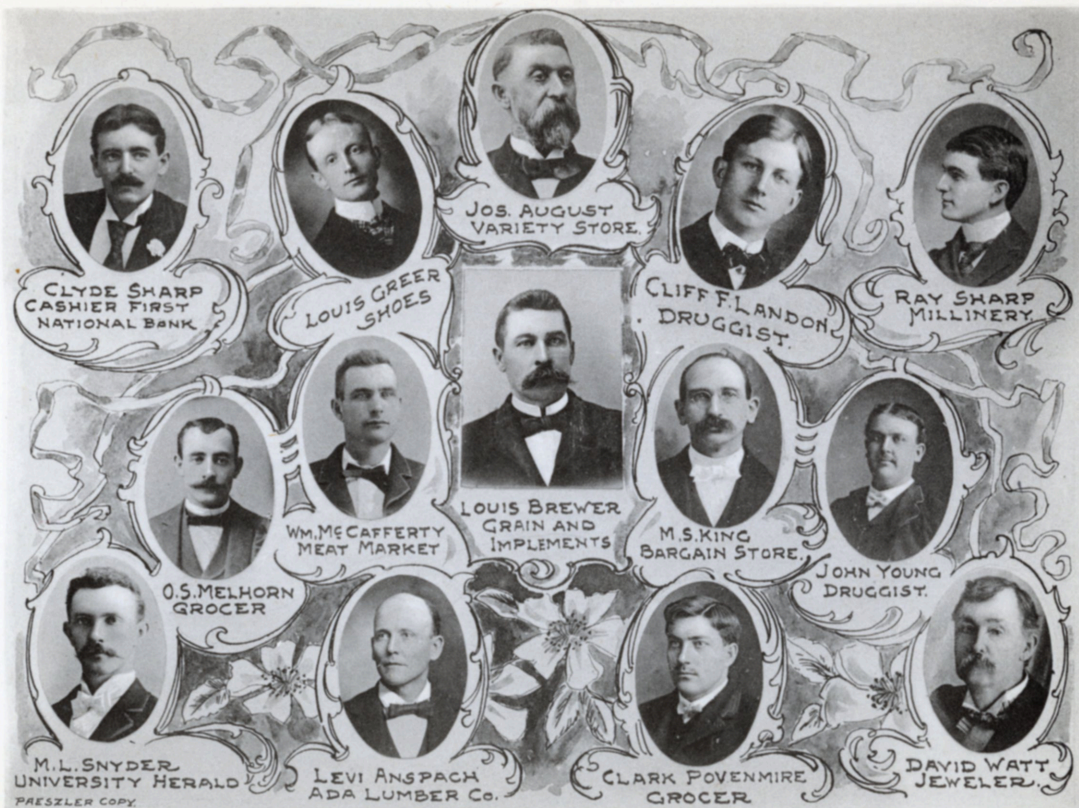 JOS. AUGUST
VARIETY STORE.
CLYDE SHARP
CASHIER FIRST
NATIONAL BANK
LOUIS GREER
SHOES
CLIFF F. LANDON,
DRUGGIST.
RAY SHARP
MILLINERY.
O.S. MELHORN
GROCER
WM. McCAFFERTY
MEAT MARKET
LOUIS BREWER
GRAIN AND
IMPLEMENTS
M.S. KING
BARGAIN STORE,
JOHN YOUNG
DRUGGIST.
M.L. SNYDER
UNIVERSITY HERALD
LEVI ANSPACH
ADA LUMBER Co.
CLARK POVENMIRE
GROCER
DAVID WATT
JEWELER.
PRESZLER COPY.